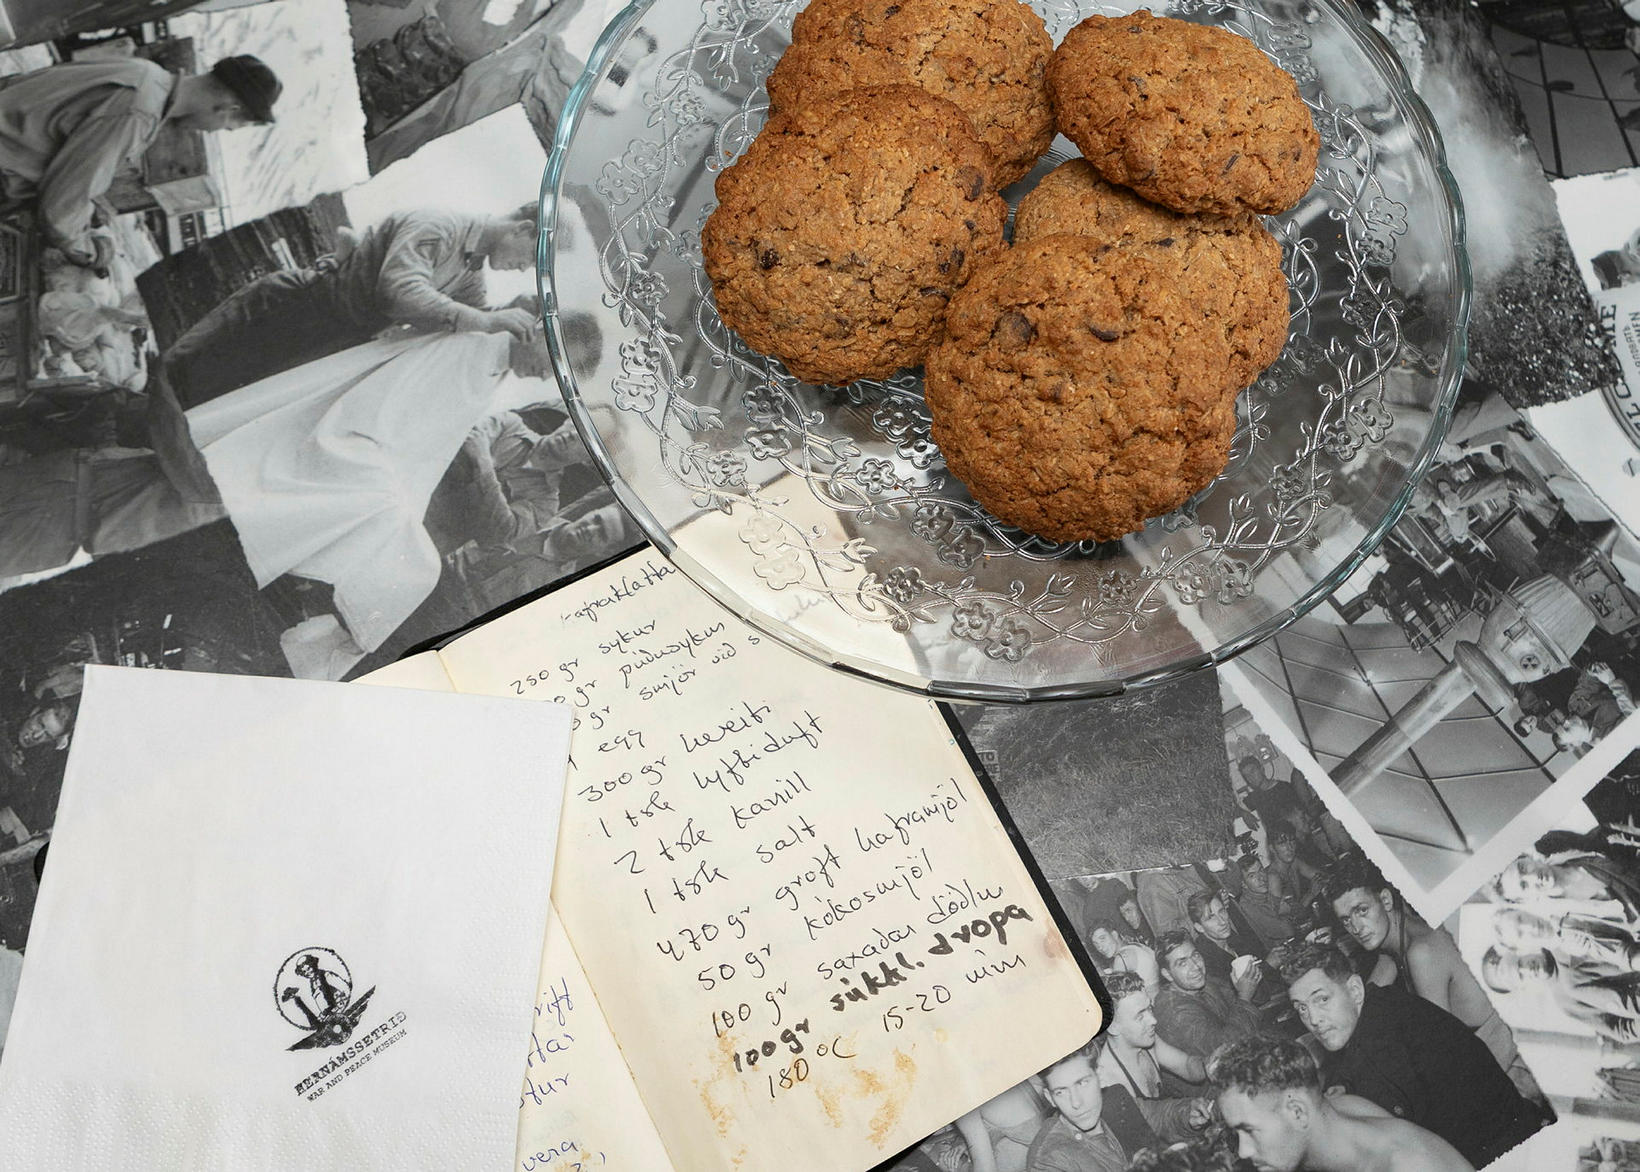 Hafraklatta
250 gr sykur
0 gr púðusykur
0 gr smjör við s
1 egg
300 gr hveiti
1 tsk lyftiduft
2 tsk kanill
1 tsk salt
470 gr gróft haframjöl
50 gr kókosmjöl
100 gr saxadar döðlur
100gr súkkl. dropa
180 °C 15-20 mín
HERNÁMSSETRIÐ
WAR AND PEACE MUSEUM
vera